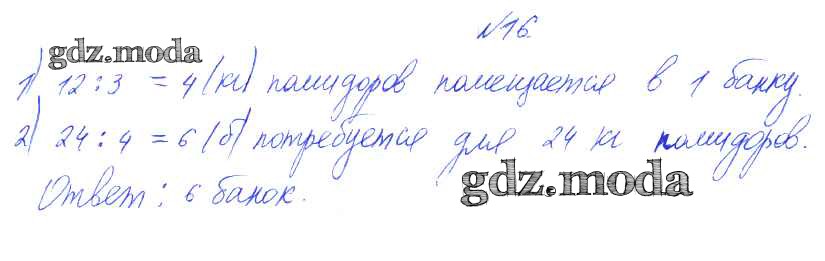 №16.
gdz.moda
1) 12:3 = 4 (кг) помидоров помещается в 1 банку.
2) 24:4 = 6 (б) потребуется для 24 кг помидоров.
Ответ: 6 банок.
gdz.moda